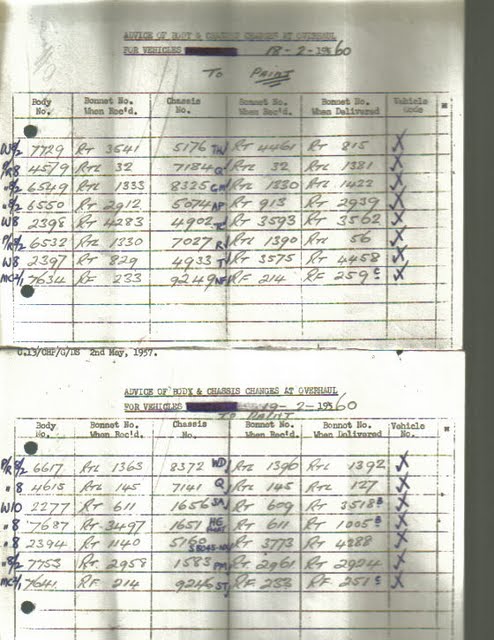 ADVICE OF BODY & CHASSIS CHANGES AT OVERHAUL
FOR VEHICLES 18-2-1960
To Paint
Body No. Bonnet No. When Rec'd. Chassis No. Bonnet No. When Rec'd. Bonnet No. When Delivered Vehicle Code
W8/2 7729 RT 3541 5176 TW RT 4461 RT 815 X
P/R8 4579 RTL 32 7184 Q RTL 32 RTL 1381 X
" 8/2 6549 RTL 1333 8325 GM RTL 1330 RTL 1422 X
" 8/2 6550 RT 2912 5074 AP RT 913 RT 2939 X
W8 2398 RT 4283 4902 RT 3593 RT 3562 X
P/R 8/2 6532 RTL 1330 7027 R RTL 1390 RTL 56 X
W8 2397 RT 829 4933 T RT 3575 RT 4458 X
MC2/1 7634 RF 233 9249 NF RF 214 RF 259 c X
C.13/CHP/G/DS 2nd May, 1957.
ADVICE OF BODY & CHASSIS CHANGES AT OVERHAUL
FOR VEHICLES 19-2-1960
TO PAINT
Body No. Bonnet No. When Rec'd. Chassis No. Bonnet No. When Rec'd. Bonnet No. When Delivered Vehicle No.
P/R 8/2 6617 RTL 1363 8372 WD RTL 1396 RTL 1392 X
" 8 4615 RTL 145 7141 Q RTL 145 RTL 127 X
W10 2277 RT 611 1656 SA RT 609 RT 3518 B X
" 8 7687 RT 3497 1651 HG RT 611 RT 1005 B X
" 8 2394 RT 1140 5160 RT 3773 RT 4288 X
" 8/2 7753 RT 2958 1583 PM RT 2961 RT 2924 X
MC2/1 7641 RF 214 9246 ST RF 233 RF 251 c X